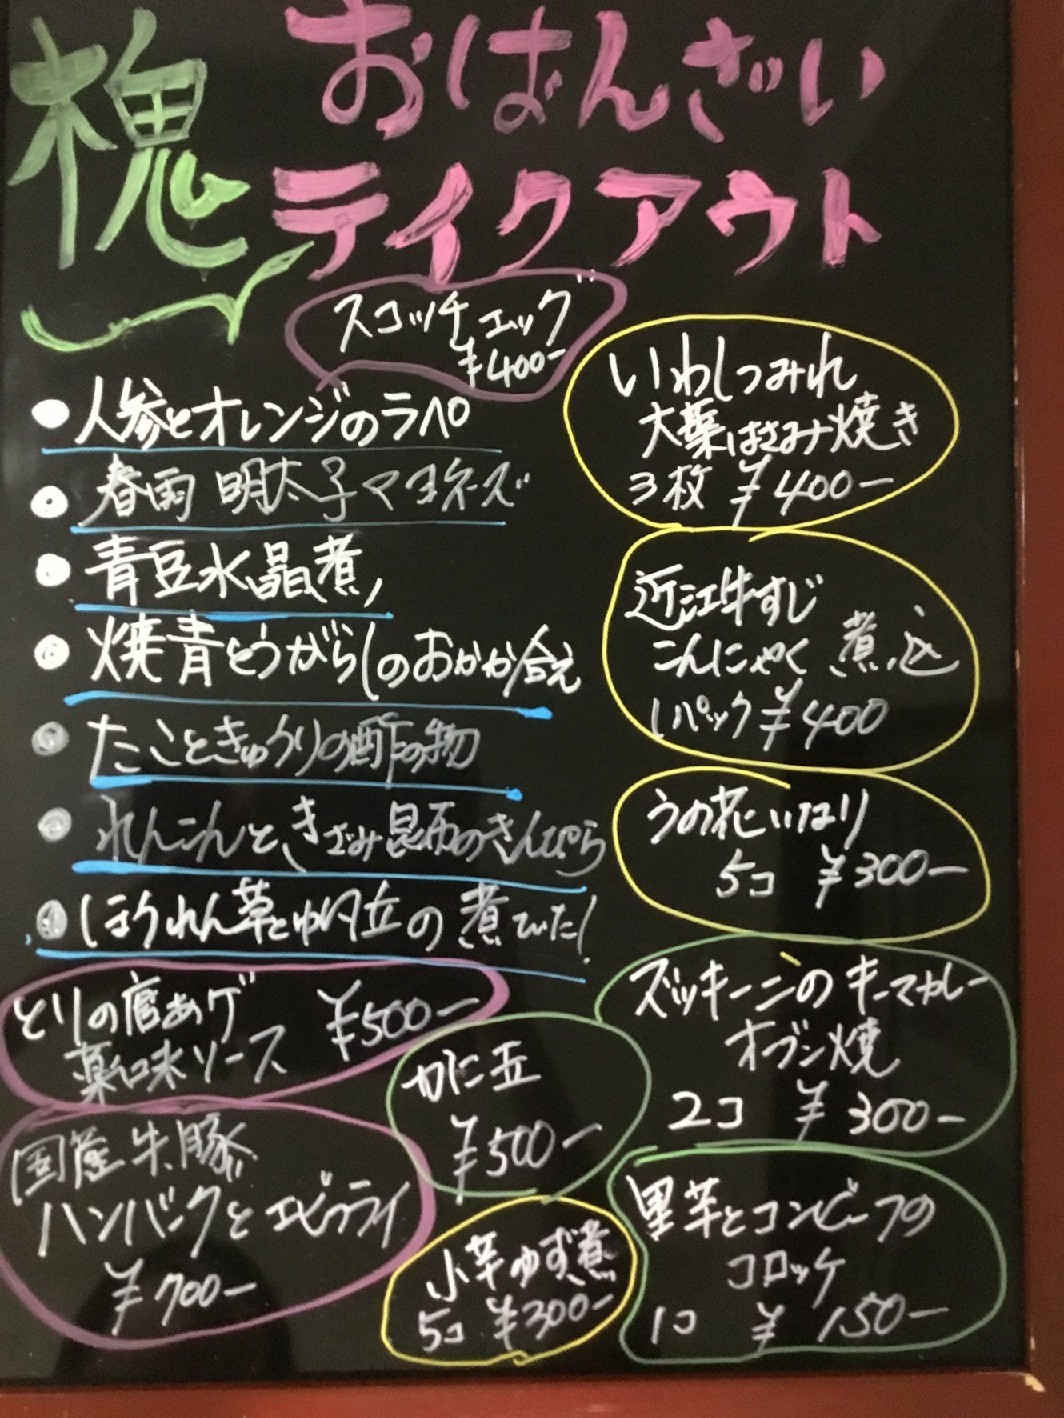 槐
おばんざい
テイクアウト
スコッチエッグ
¥400-
・人参とオレンジのラペ
・春雨 明太子マヨネーズ
・青豆水晶煮
・焼青とうがらしのおかか合え
・たこときゅうりの酢の物
・れんこんときざみ昆布のきんぴら
・ほうれん草とゆば丘の煮びたし
いわしつみれ
大葉はさみ焼き
3枚 ¥400-
近江牛すじ
こんにゃく煮込
1パック¥400
うの花いなり
5コ ¥300-
ズッキーニのキーマカレー
オーブン焼
2コ ¥300-
とりの唐あげ ¥500-
薬味ソース
かに玉
¥500-
国産牛、豚
ハンバーグとエビフライ
¥700-
小芋ゆず煮
5コ ¥300-
里芋とコンビーフの
コロッケ
1コ ¥150-